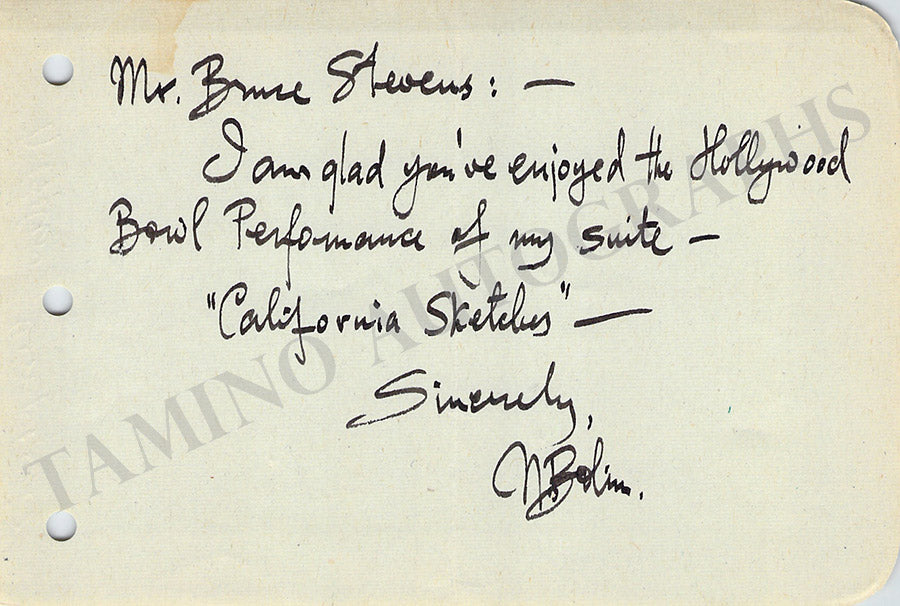 Mr. Bruce Stevens: —
I am glad you've enjoyed the Hollywood
Bowl Perfomance of my suite —
"California Sketches" —
Sincerely,
N. Bolin.
TAMINO AUTOGRAPHS